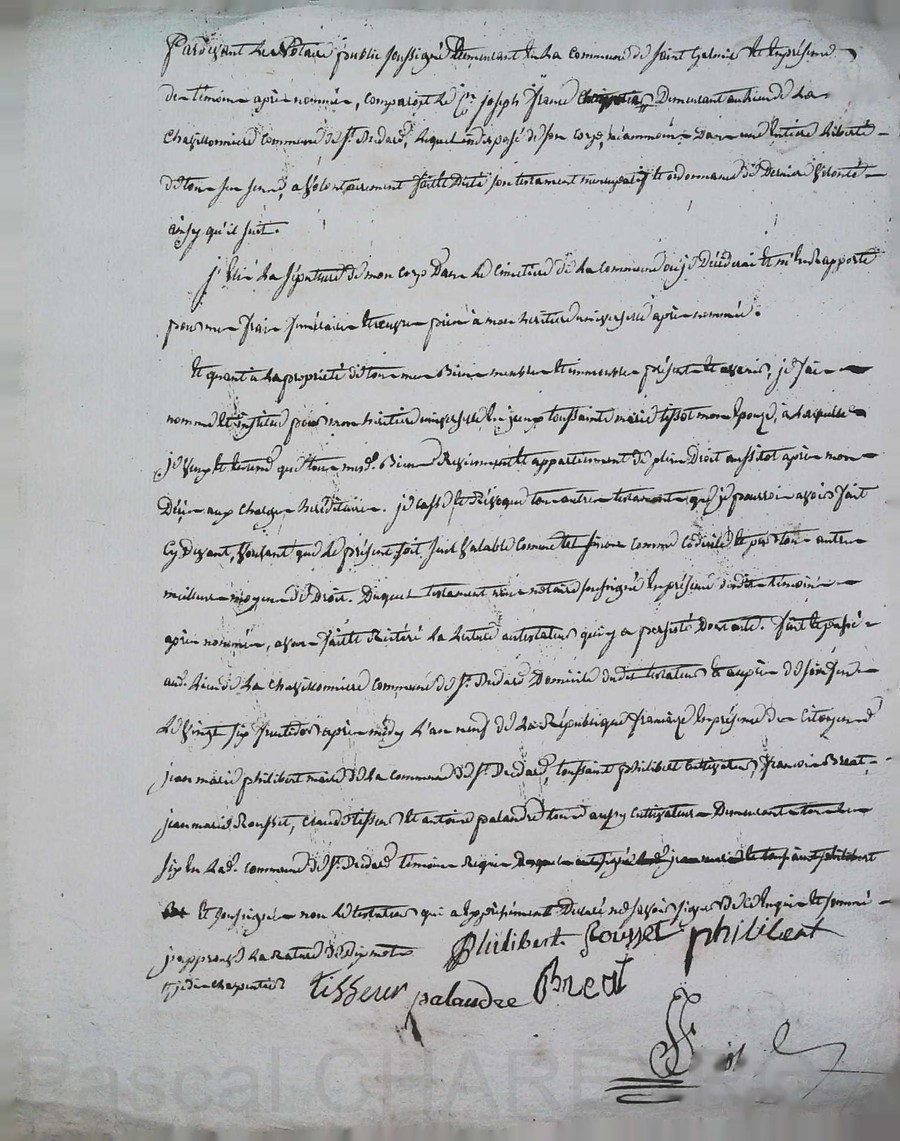 Pardevant Le Notaire public soussigné demeurant en La commune de saint Galmier et en présence
des témoins après nommés, comparoit Le Cn. joseph france demeurant au lieu de La
chavillonniere commune de St. Médard, Lequel indisposé de son corps, néanmoins dans une entière Liberté
de tous ses sens, a volontairement fait et dicté son testament nuncupatif et ordonnance de Dernière volonté
ainsy qu'il suit.
j'élis La sépulture de mon corps Dans Le Cimetière de La commune où je Décéderai et m'en rapporte
pour mes frais funéraires et œuvres pies à mon héritière universelle après nommée.
Et quant à La propriété de tous mes Biens meubles et immeubles présents et avenir, je fais
nomme et institue pour mon héritière universelle toussainte marie tissot mon épouse, à Laquelle
je veux et entend que tous mesd. Biens Reviennent et appartiennent de plein Droit aussitot après mon
Décès aux charges héréditaires. je casse et Révoque tous autres testaments que je pourrois avoir fait
Cy devant, voulant que Le présent soit seul valable comme tel sinon comme codicile et par tous autres
meilleurs moyens de Droit. Duquel testament nous notaire soussigné en présence desdits témoins
après nommés, avons fait et Réitéré La Lecture au testateur qui y a persisté Dont acte. fait et passé
aud. Lieu de La chavillonniere commune de St. Médard Domicile dudit testateur et auprès de son
Le vingt six fructidor après midy L'an neuf de La République française En présence des Citoyens
jean marie philibert maire de La commune de St. Médard, toussaint philibert cultivateur, françois Breat,
jean marie Rousset, claude tisseur et antoine palandre tous aussy cultivateurs Demeurants tous les
six en Lad. commune de St. Médard témoins Requis
Et soussignés non Le testateur qui a expressément Déclaré ne savoir signer de ce Enquis et sommé
j'approuve La rature de dix mots
et je dis charpentier
philibert Rousset philibert
tisseur palandre Breat